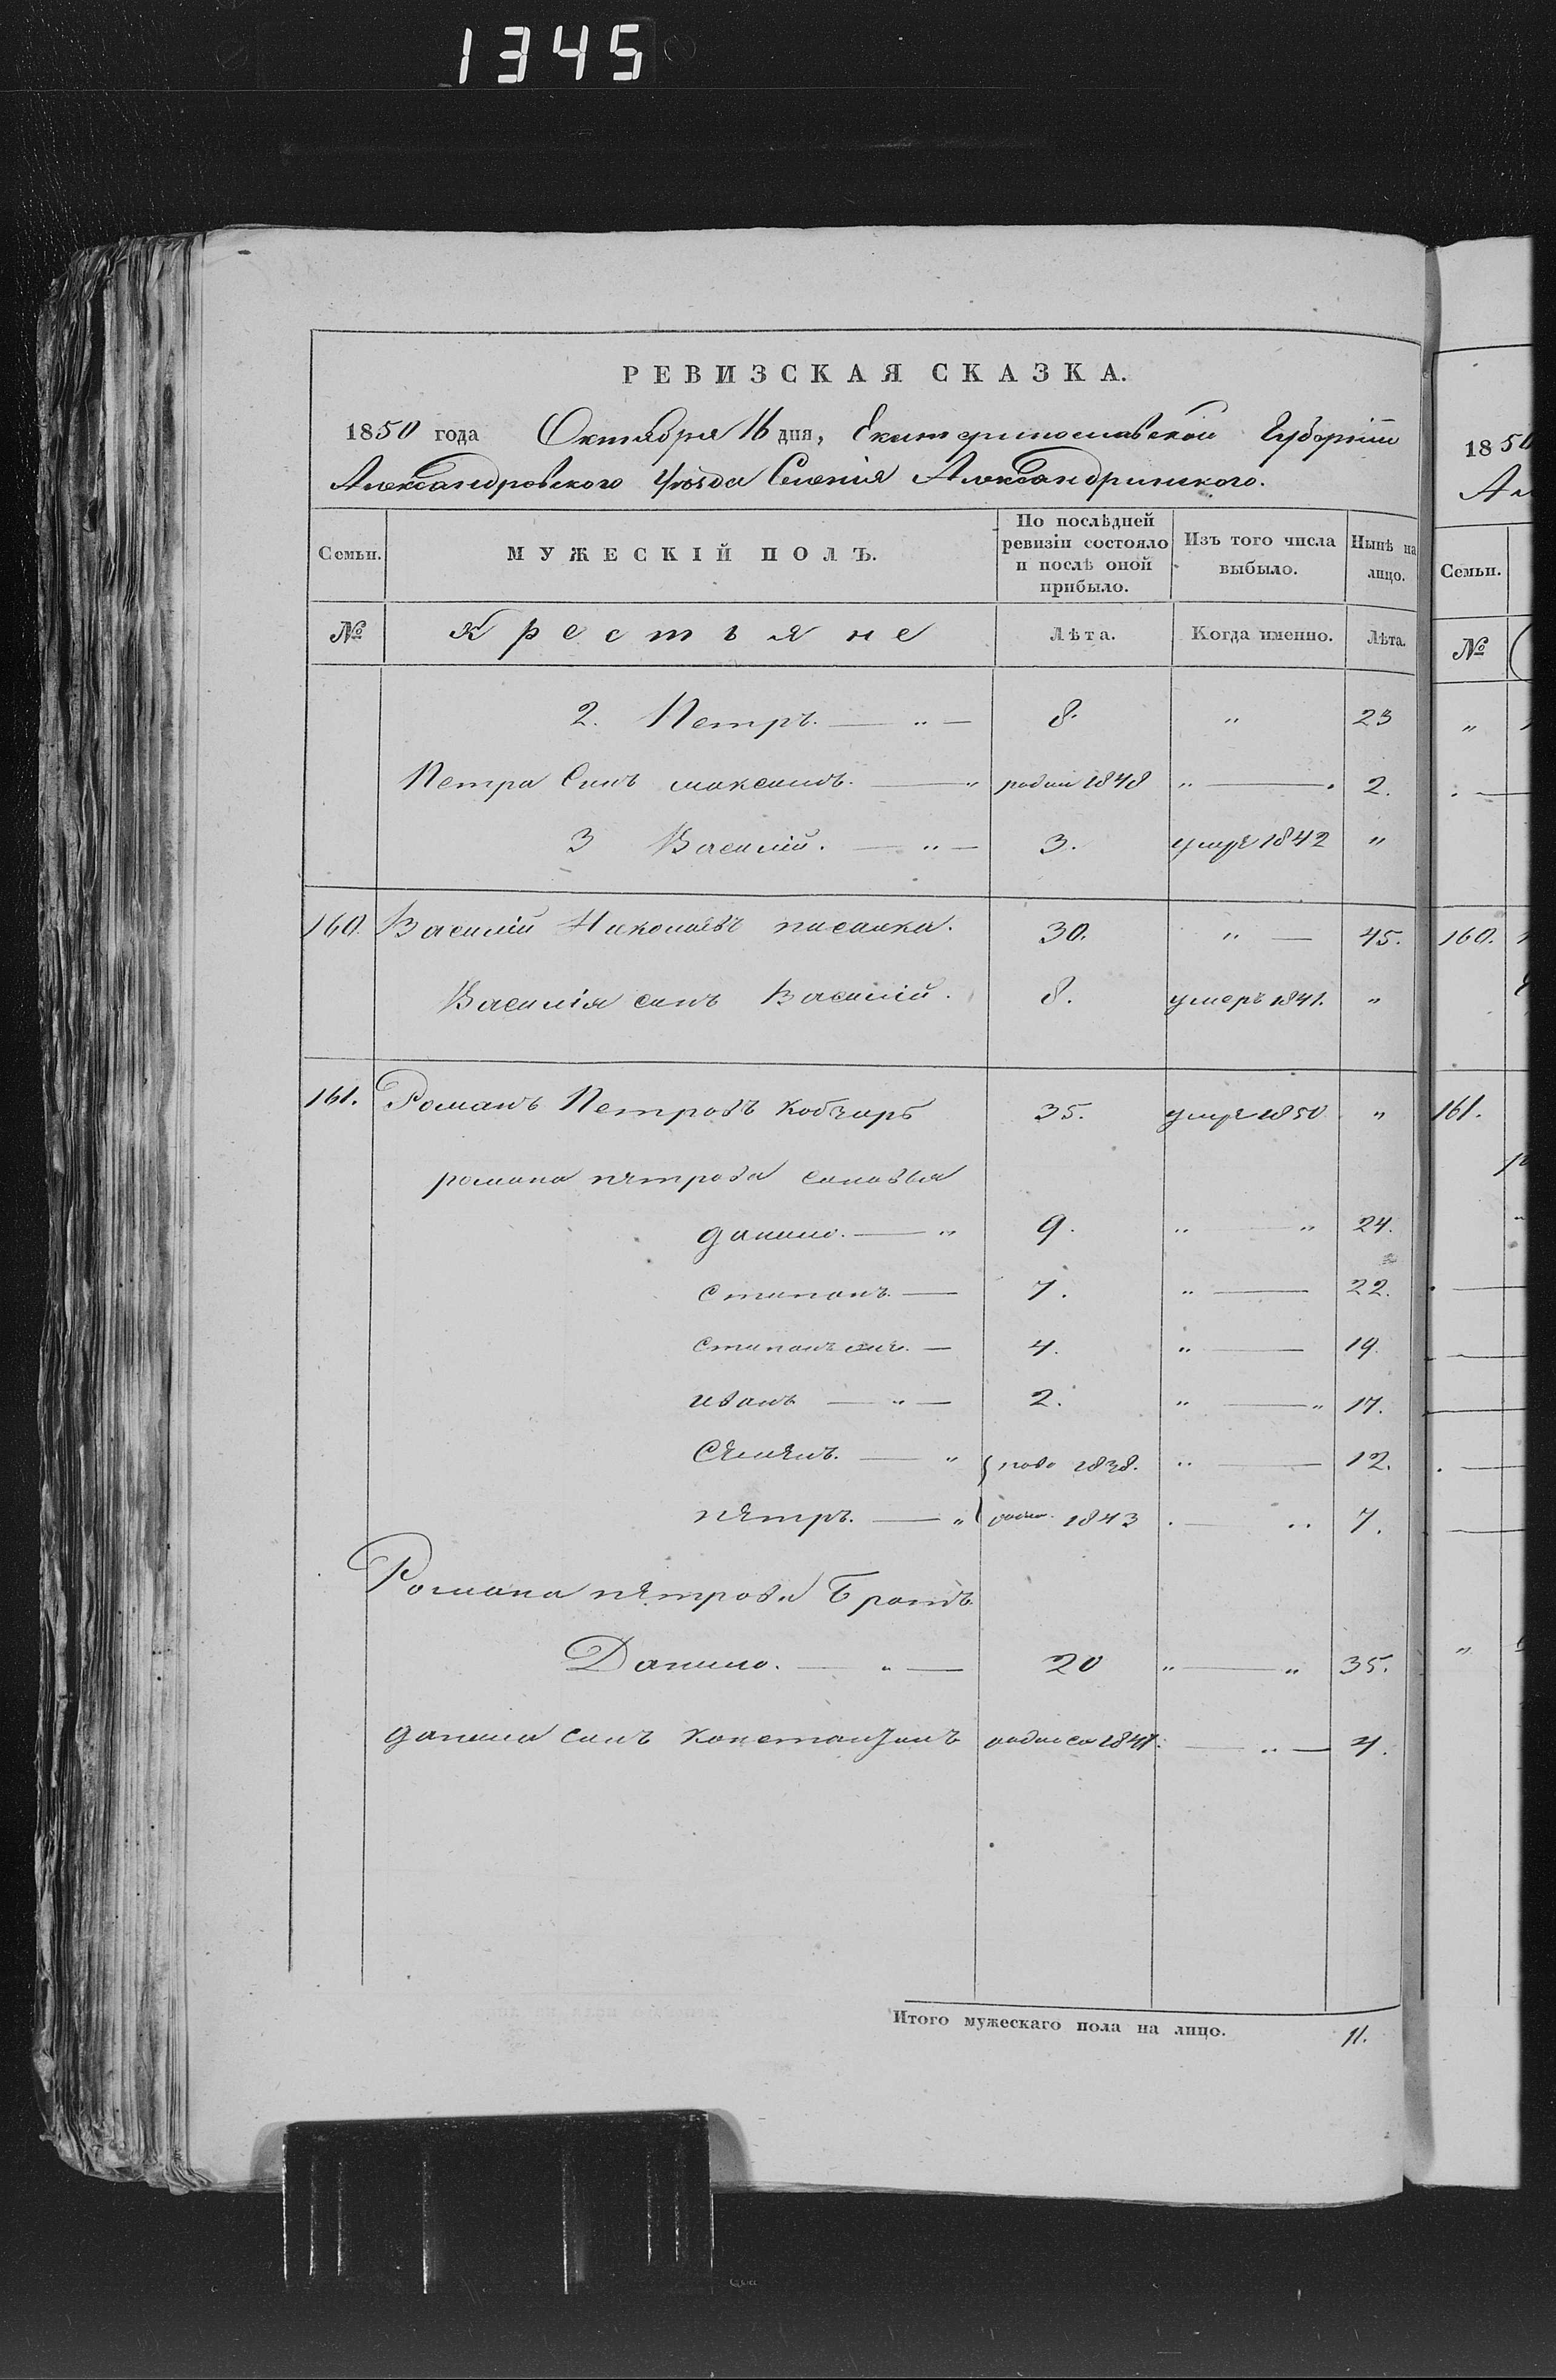 1345
РЕВИЗСКАЯ СКАЗКА.
1850 года Октября 16 дня, Екатеринославской Губерніи
Александровского Уѣзда Селенія Александринского.
Семьи. МУЖЕСКІЙ ПОЛЪ. По послѣдней ревизіи состояло и послѣ оной прибыло. Изъ того числа выбыло. Нынѣ на лицо.
№ Крестьяне Лѣта. Когда именно. Лѣта.
2. Петръ. — „ — 8. „ 23
Петра Синъ максимъ. — „ родил 1848 „ — . 2.
3 Василій. — „ — 3. умре 1842 „
160. Василій Николаевъ писанка. 30. „ — 45.
Василія синъ Василій. 8. умеръ 1841. „
161. Романъ Петровъ Кобзарь 35. умре 1850 „
романа петрова сановья
данило. — „ 9. „ — „ 24.
степанъ. — 7. „ — 22.
степанъ — 4. „ — 19.
иванъ — „ — 2. „ — „ 17.
Семенъ. — „ 1838. „ — 12.
петръ. — „ 1843 . — „ 7.
Романа петрова Братъ
Данило. — „ — 20 „ — „ 35.
данила синъ Константинъ — „ — 4.
Итого мужескаго пола на лицо. 11.
1850
Ал
Семьи.
№
„
160.
161.
„